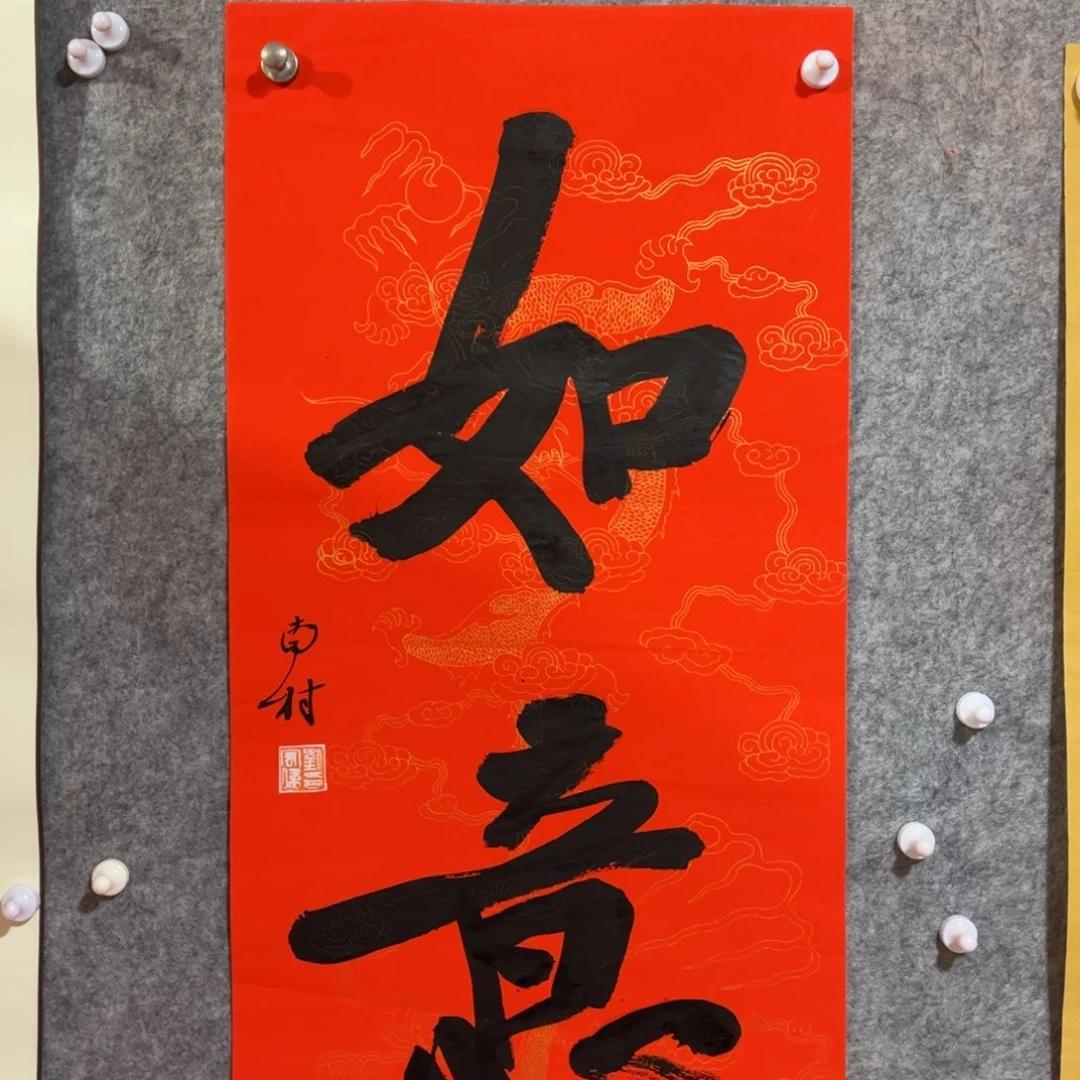 如意
南村